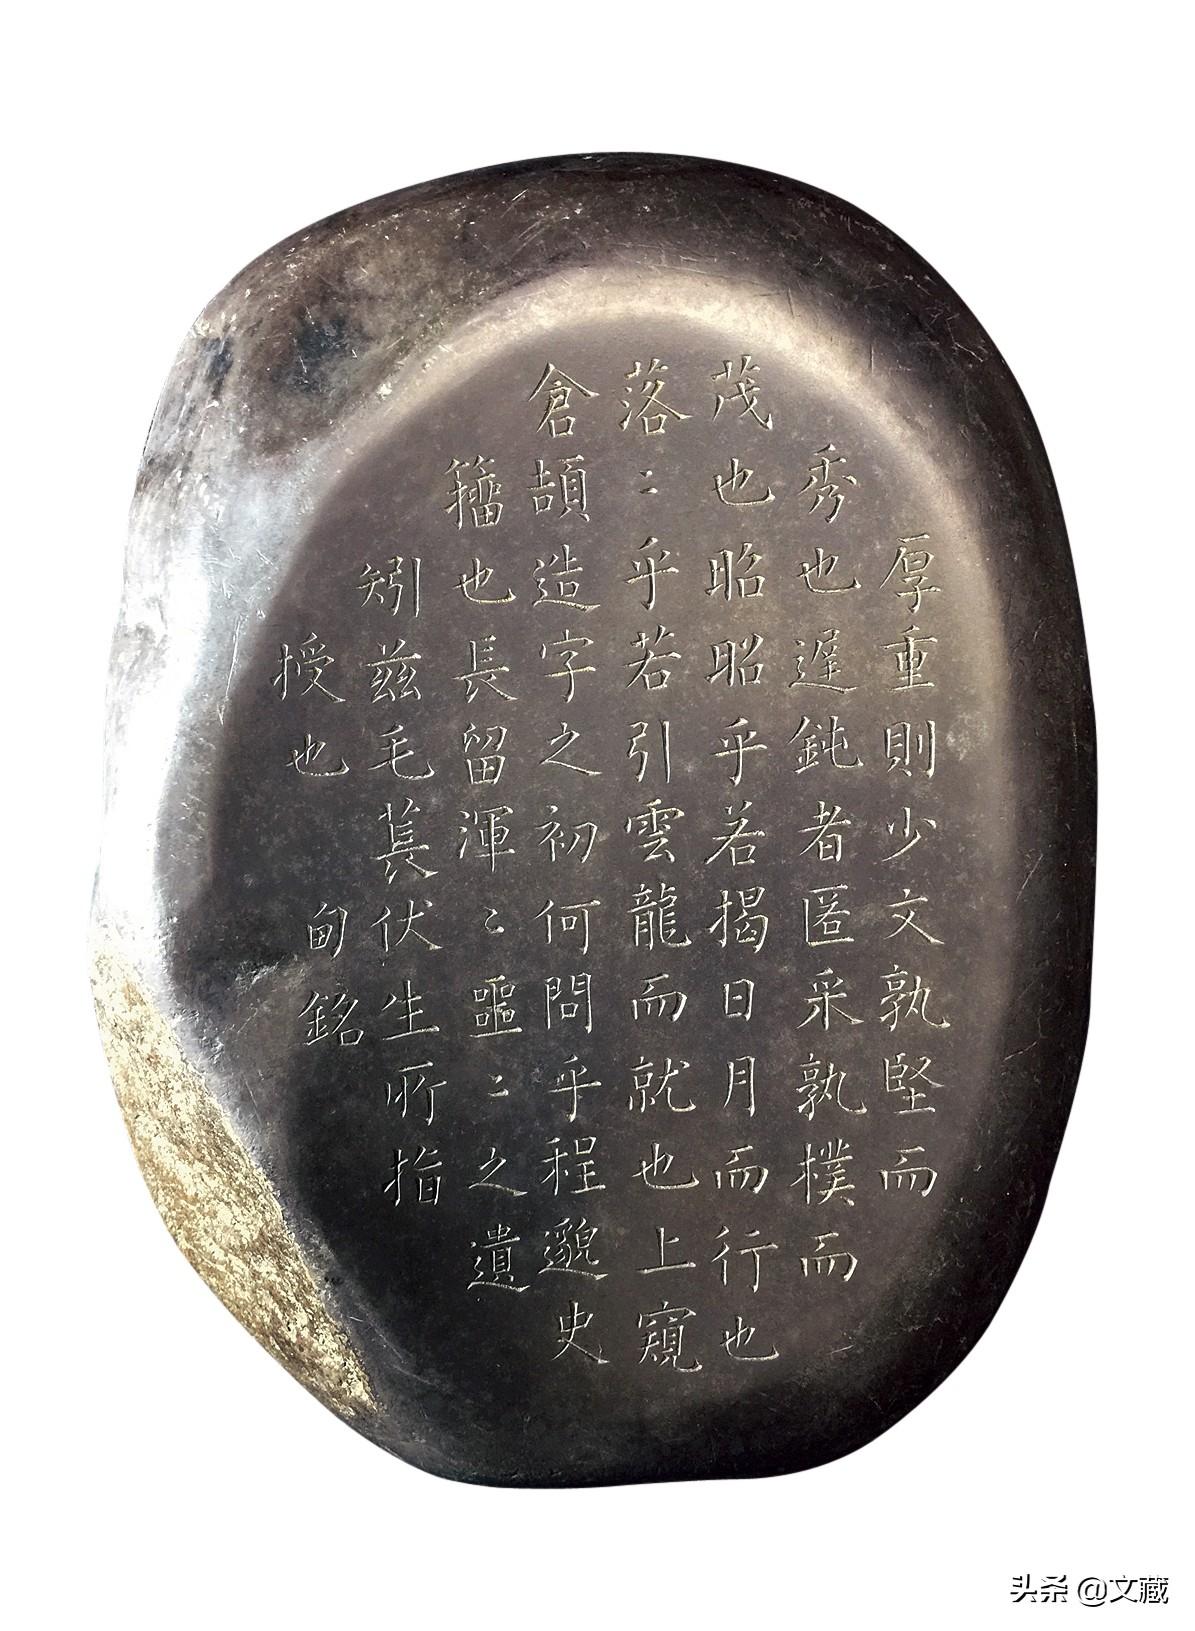 厚重則少文孰堅而
秀也遅鈍者匿采孰樸而
茂也昭昭乎若揭日月而行也
落〻乎若引雲龍而就也上窺
倉頡造字之初何問乎程邈史
籀也長留渾〻噩〻之遺
矧兹毛萇伏生所指
授也
甸銘
头条 @文藏